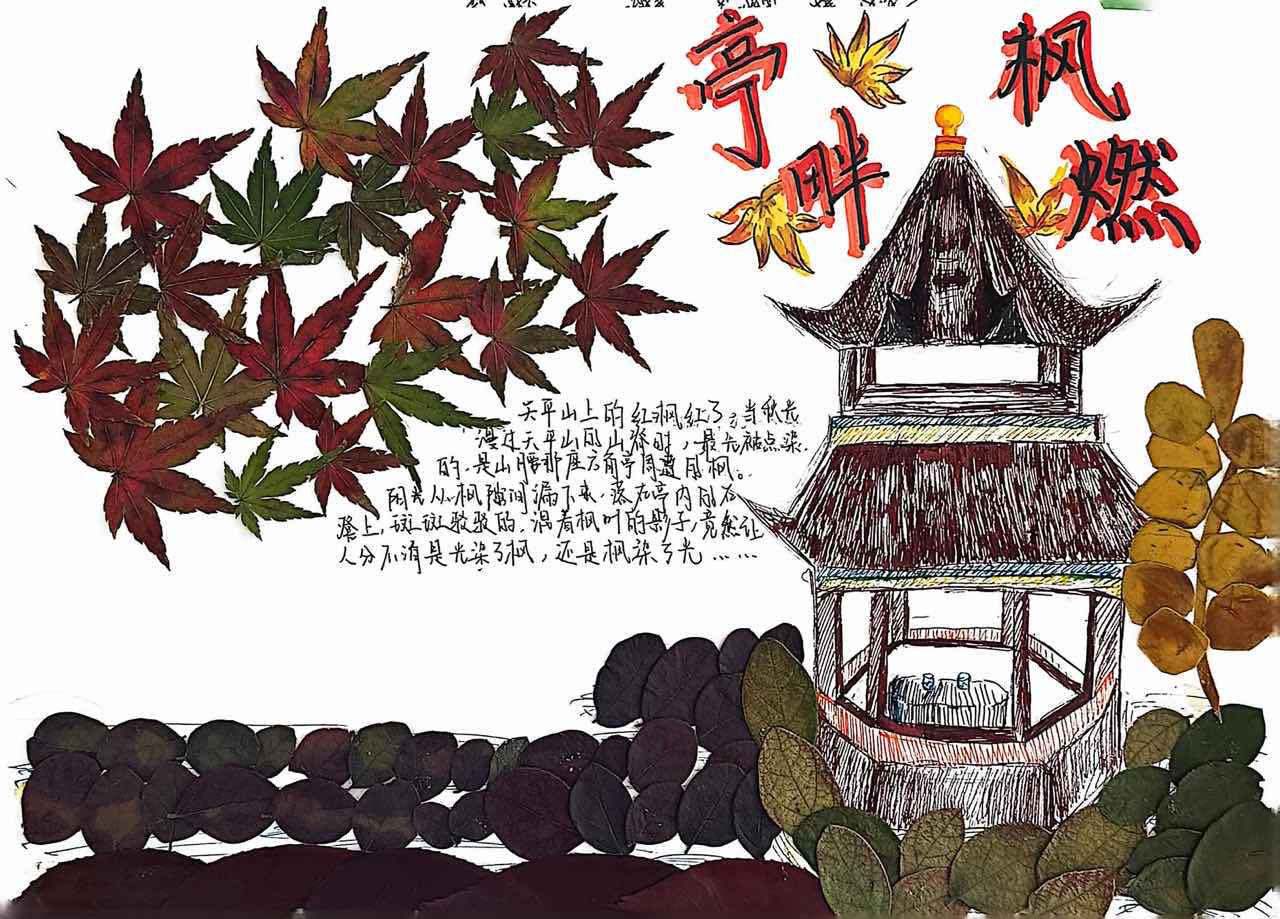 亭畔
枫燃
天平山上的红枫红了,当秋光
漫过天平山的山脊时,最先被点染
的,是山腰那座六角亭周遭的枫。
阳光从枫隙间漏下来,落在亭内的石
凳上,斑斑驳驳的,混着枫叶的影子,竟然让
人分不清是光染了枫,还是枫染了光……